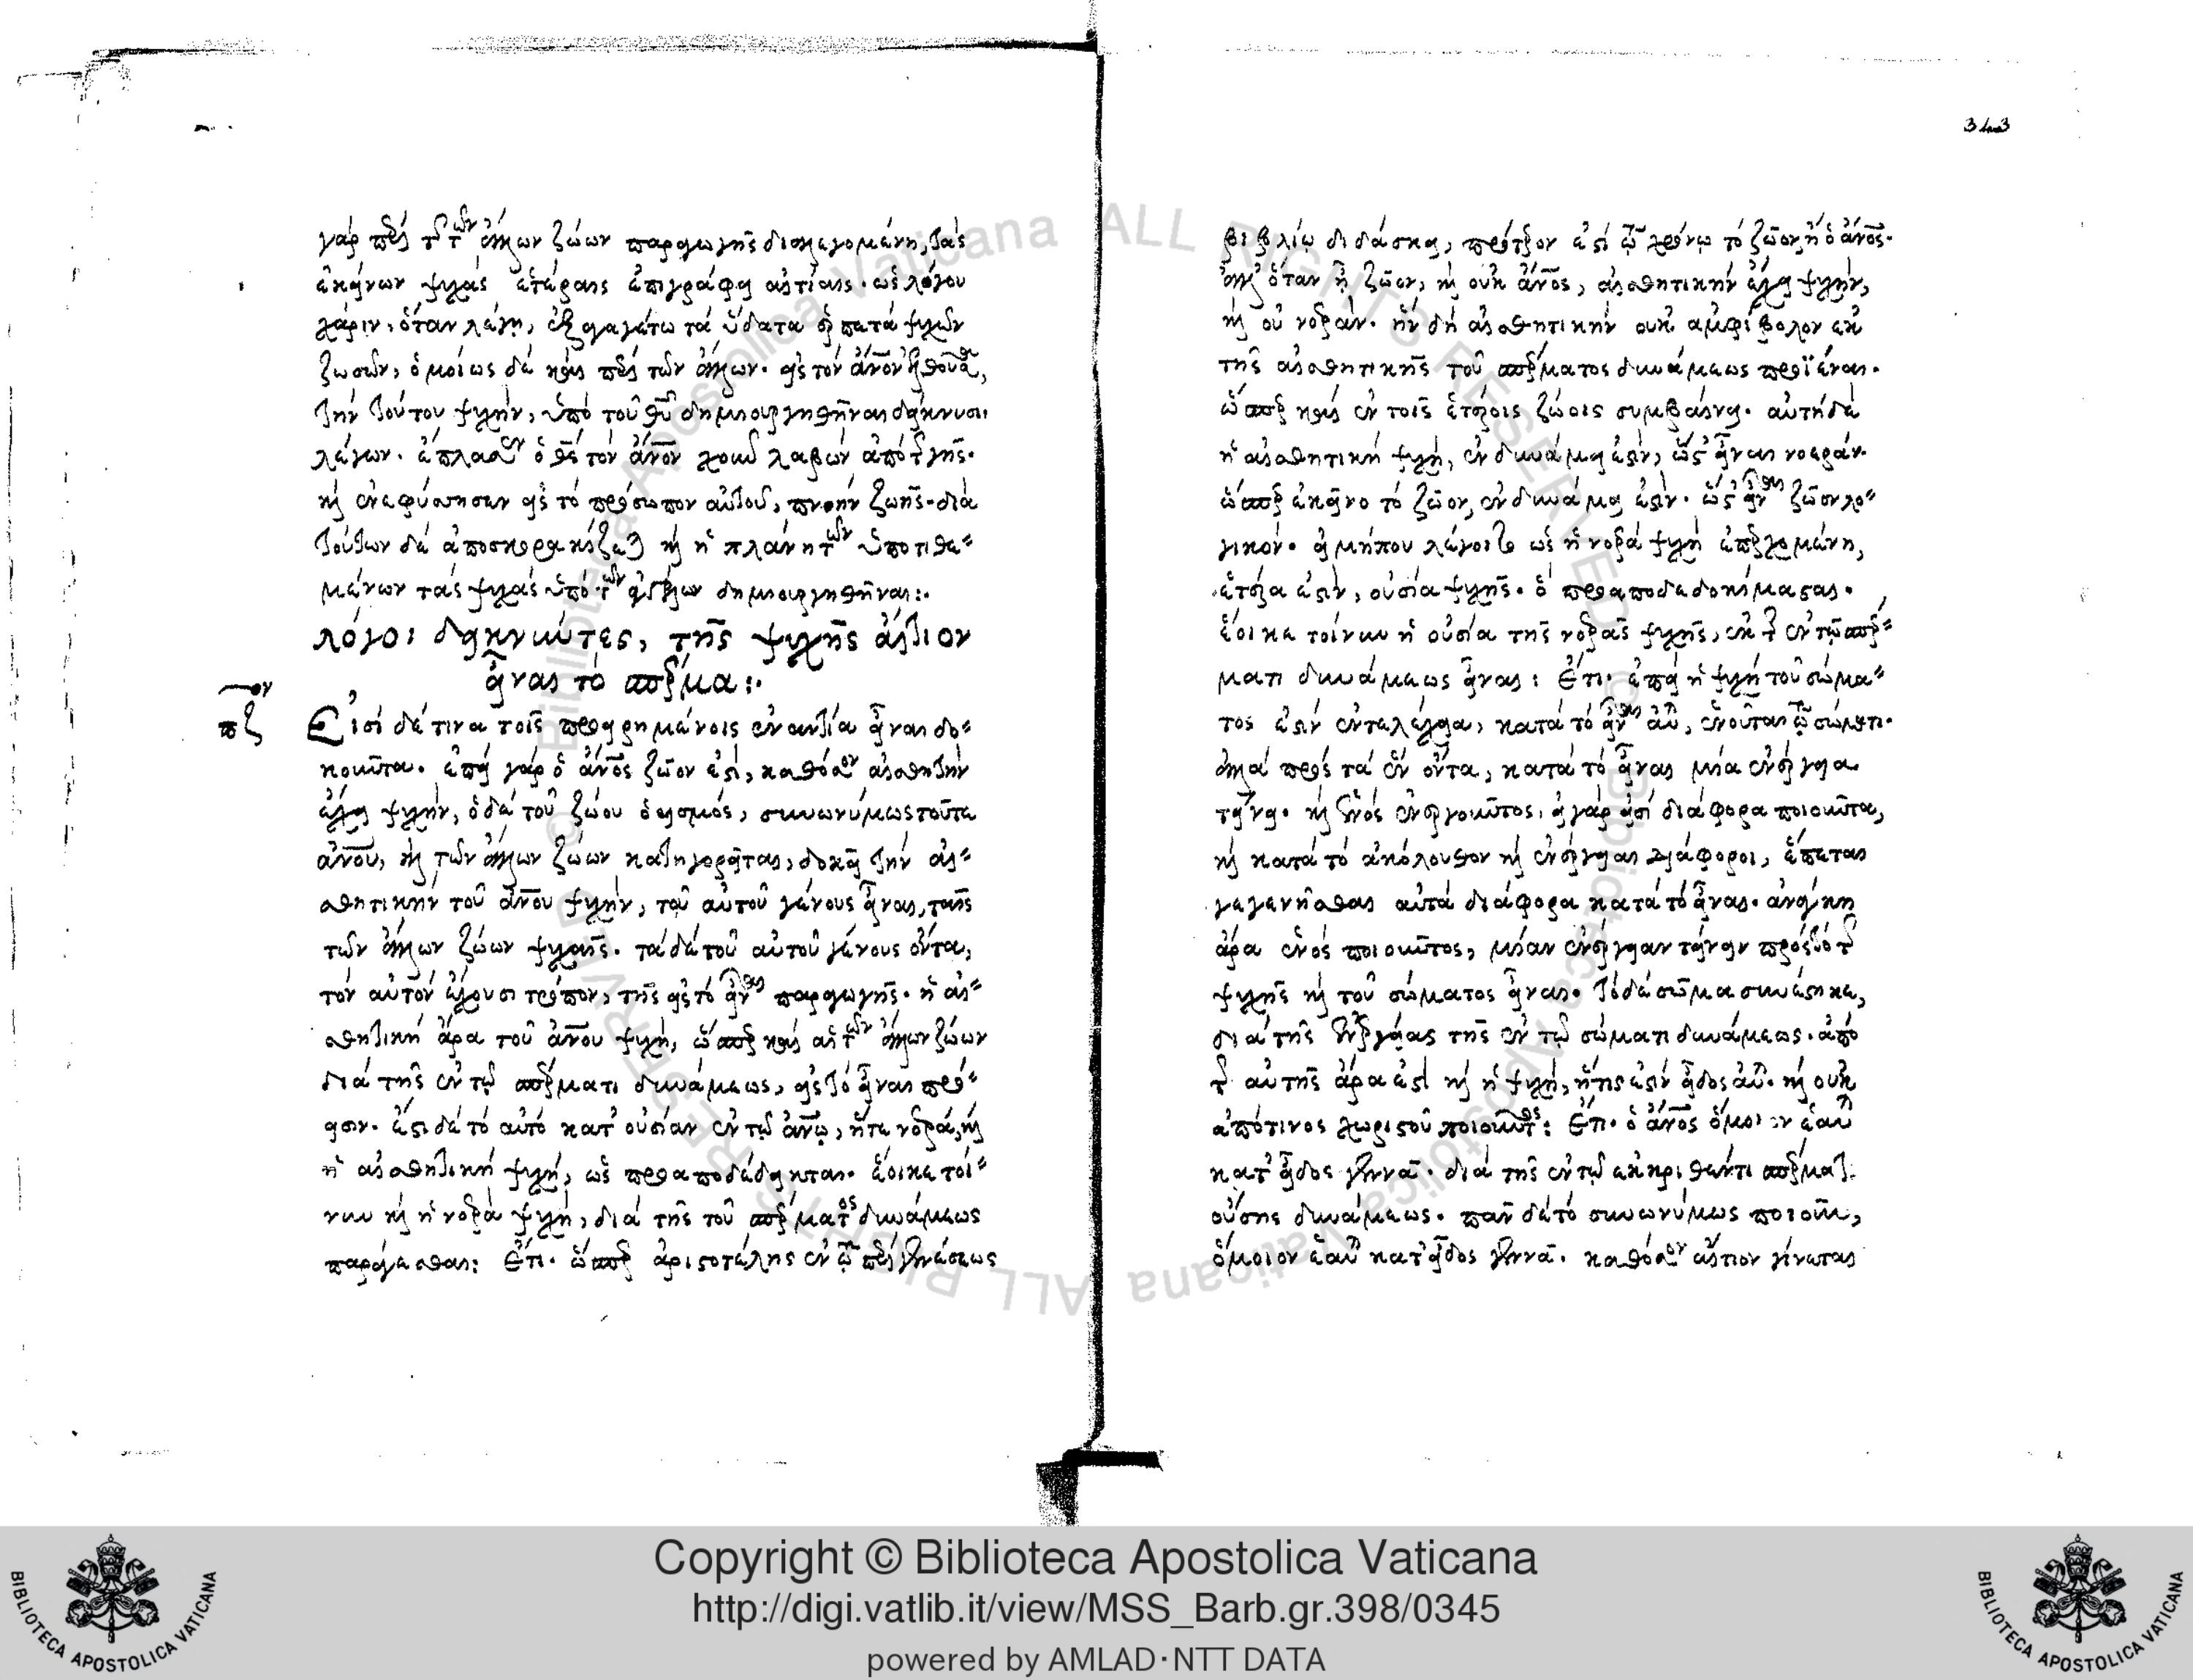 γὰρ περὶ τῆς τῶν ἄλλων ζώων παραγωγῆς διαλεγομένη, τὰς
ἐκείνων ψυχὰς ἑτέραις ἐπιγράφει αἰτίαις. ὡς λόγου
χάριν, ὅταν λέγῃ, ἐξαγαγέτω τὰ ὕδατα ἑρπετὰ ψυχῶν
ζωσῶν, ὁμοίως δὲ καὶ περὶ τῶν ἄλλων. εἰς τὸν ἄνον ἐλθοῦσα,
τὴν τούτου ψυχήν, ὑπὸ τοῦ θυ δημιουργηθῆναι δείκνυσι
λέγων. ἔπλασεν ὁ θς τὸν ἄνον χοῦν λαβὼν ἀπὸ τῆς γῆς.
καὶ ἐνεφύσησεν εἰς τὸ πρόσωπον αὐτοῦ, πνοὴν ζωῆς. διὰ
τούτων δὲ ἀποσκορακίζεται καὶ ἡ πλάνη τῶν ὑποτιθε=
μένων τὰς ψυχὰς ὑπὸ τῶν ἀγγέλων δημιουργηθῆναι:.
λόγοι δεικνύντες, τῆς ψυχῆς αἴτιον
εἶναι τὸ σπέρμα:.
πζον
Εἰσὶ δέ τινα τοῖς προειρημένοις ἐναντία εἶναι δο=
κοῦντα. ἐπεὶ γὰρ ὁ ἄνος ζῶον ἐστί, καθόσον αἰσθητὴν
ἔχει ψυχήν, ὁ δὲ τοῦ ζώου ὁρισμός, συνωνύμως τοῦτε
ἀνου, καὶ τῶν ἄλλων ζώων κατηγορεῖται, δοκεῖ τὴν αἰ=
σθητικὴν τοῦ ἀνου ψυχήν, τοῦ αὐτοῦ γένους εἶναι, ταῖς
τῶν ἄλλων ζώων ψυχαῖς. τὰ δὲ τοῦ αὐτοῦ γένους ὄντα,
τὸν αὐτὸν ἔχουσι τρόπον, τῆς εἰς τὸ εἶναι παραγωγῆς. ἡ αἰ=
σθητικὴ ἄρα τοῦ ἀνου ψυχή, ὥσπερ καὶ αἱ τῶν ἄλλων ζώων
διὰ τῆς ἐν τῷ σπέρματι δυνάμεως, εἰς τὸ εἶναι πρό=
εισιν. ἔστι δὲ τὸ αὐτὸ κατ' οὐσίαν ἐν τῷ ἀνω, ἥτε νοερά, καὶ
ἡ αἰσθητικὴ ψυχή, ὡς προαποδέδεικται. ἔοικε τοί=
νυν καὶ ἡ νοερὰ ψυχή, διὰ τῆς τοῦ σπέρματος δυνάμεως
παράγεσθαι: Ἔτι. ὥσπερ ἀριστοτέλης ἐν τῷ περὶ γεννέσεως
343
βιβλίῳ διδάσκει, πρότερον ἐστὶ τῷ χρόνῳ τὸ ζῶον, ἢ ὁ ἄνος.
ἀλλ' ὅταν ᾖ ζῶον, καὶ οὐκ ἄνος, αἰσθητικὴν ἔχει ψυχήν,
καὶ οὐ νοεράν. ἣν δὴ αἰσθητικὴν οὐκ ἀμφίβολον ἐκ
τῆς αἰσθητικῆς τοῦ σπέρματος δυνάμεως προϊέναι.
ὥσπερ καὶ ἐν τοῖς ἑτέροις ζώοις συμβαίνει. αὐτὴ δὲ
ἡ αἰσθητικὴ ψυχή, ἐν δυνάμει ἐστίν, ὥστ' εἶναι νοεράν.
ὥσπερ ἐκεῖνο τὸ ζῶον, ἐν δυνάμει ἐστίν. ὥστ' εἶναι ζῶον λο=
γικόν. εἰ μήπου λέγοιτο ὡς ἡ νοερὰ ψυχὴ ἐπερχομένη,
ἑτέρα ἐστίν, οὐσία ψυχῆς. ὃ προαποδεδοκίμασται.
ἔοικε τοίνυν ἡ οὐσία τῆς νοερᾶς ψυχῆς, ἐκ τῆς ἐν τῷ σπέρ=
ματι δυνάμεως εἶναι: Ἔτι. ἐπεὶ ἡ ψυχὴ τοῦ σώμα=
τος ἐστὶν ἐντελέχεια, κατὰ τὸ εἶναι αὐτοῦ, ἑνοῦται τῷ σώματι.
ἀλλὰ πρὸς τὰ ἓν ὄντα, κατὰ τὸ εἶναι μία ἐνέργεια
τείνει. καὶ ἑνὸς ἐνεργοῦντος, εἰ γὰρ εἰσὶ διάφορα ποιοῦντα,
καὶ κατὰ τὸ ἀκόλουθον καὶ ἐνέργειαι διάφοροι, ἕπεται
γεγενῆσθαι αὐτὰ διάφορα κατὰ τὸ εἶναι. ἀνάγκη
ἄρα ἑνὸς ποιοῦντος, μίαν ἐνέργειαν τείνειν πρὸς τὸ τῆς
ψυχῆς καὶ τοῦ σώματος εἶναι. τὸ δὲ σῶμα συνέστηκε,
διὰ τῆς ἐνεργείας τῆς ἐν τῷ σώματι δυνάμεως. ἀπὸ
τῆς αὐτῆς ἄρα ἐστὶ καὶ ἡ ψυχή, ἥτις ἐστὶν εἶδος αὐτοῦ. καὶ οὐκ
ἀπό τινος χωριστοῦ ποιοῦντος: Ἔτι. ὁ ἄνος ὅμοιον ἑαυτῷ
κατ' εἶδος γεννᾷ. διὰ τῆς ἐν τῷ ἐκκριθέντι σπέρματι
οὔσης δυνάμεως. πᾶν δὲ τὸ συνωνύμως ποιοῦν,
ὅμοιον ἑαυτῷ κατ' εἶδος γεννᾷ. καθόσον αἴτιον γίνεται
Copyright © Biblioteca Apostolica Vaticana
http://digi.vatlib.it/view/MSS_Barb.gr.398/0345
powered by AMLAD·NTT DATA
BIBLIOTECA APOSTOLICA VATICANA
BIBLIOTECA APOSTOLICA VATICANA